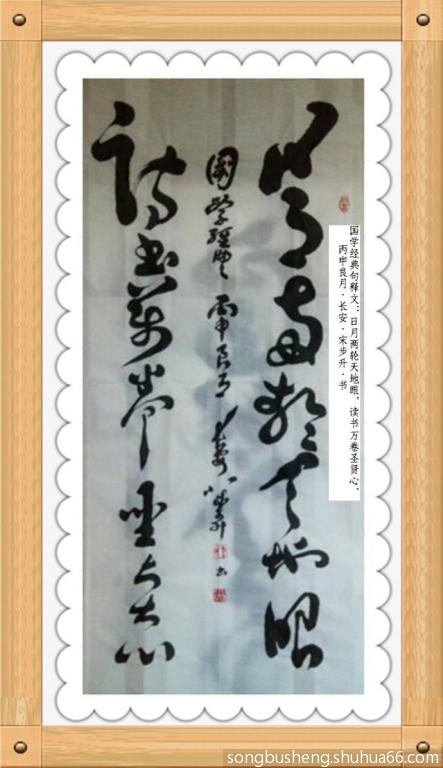 国学经典句释文：日月两轮天地眼，读书万卷圣贤心。
丙申良月·长安·宋步升·书
日月两轮天地眼
读书万卷圣贤心
國學經典 丙申良月 長安 宋步升 书
songbusheng.shuhua66.com